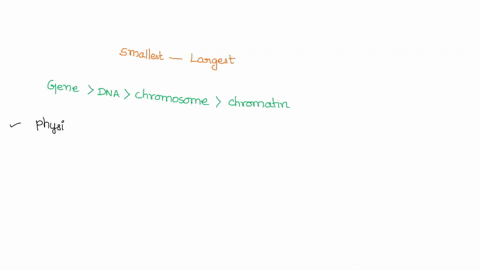 Smallest — Largest
Gene > DNA > chromosome > chromatin
✓ physi